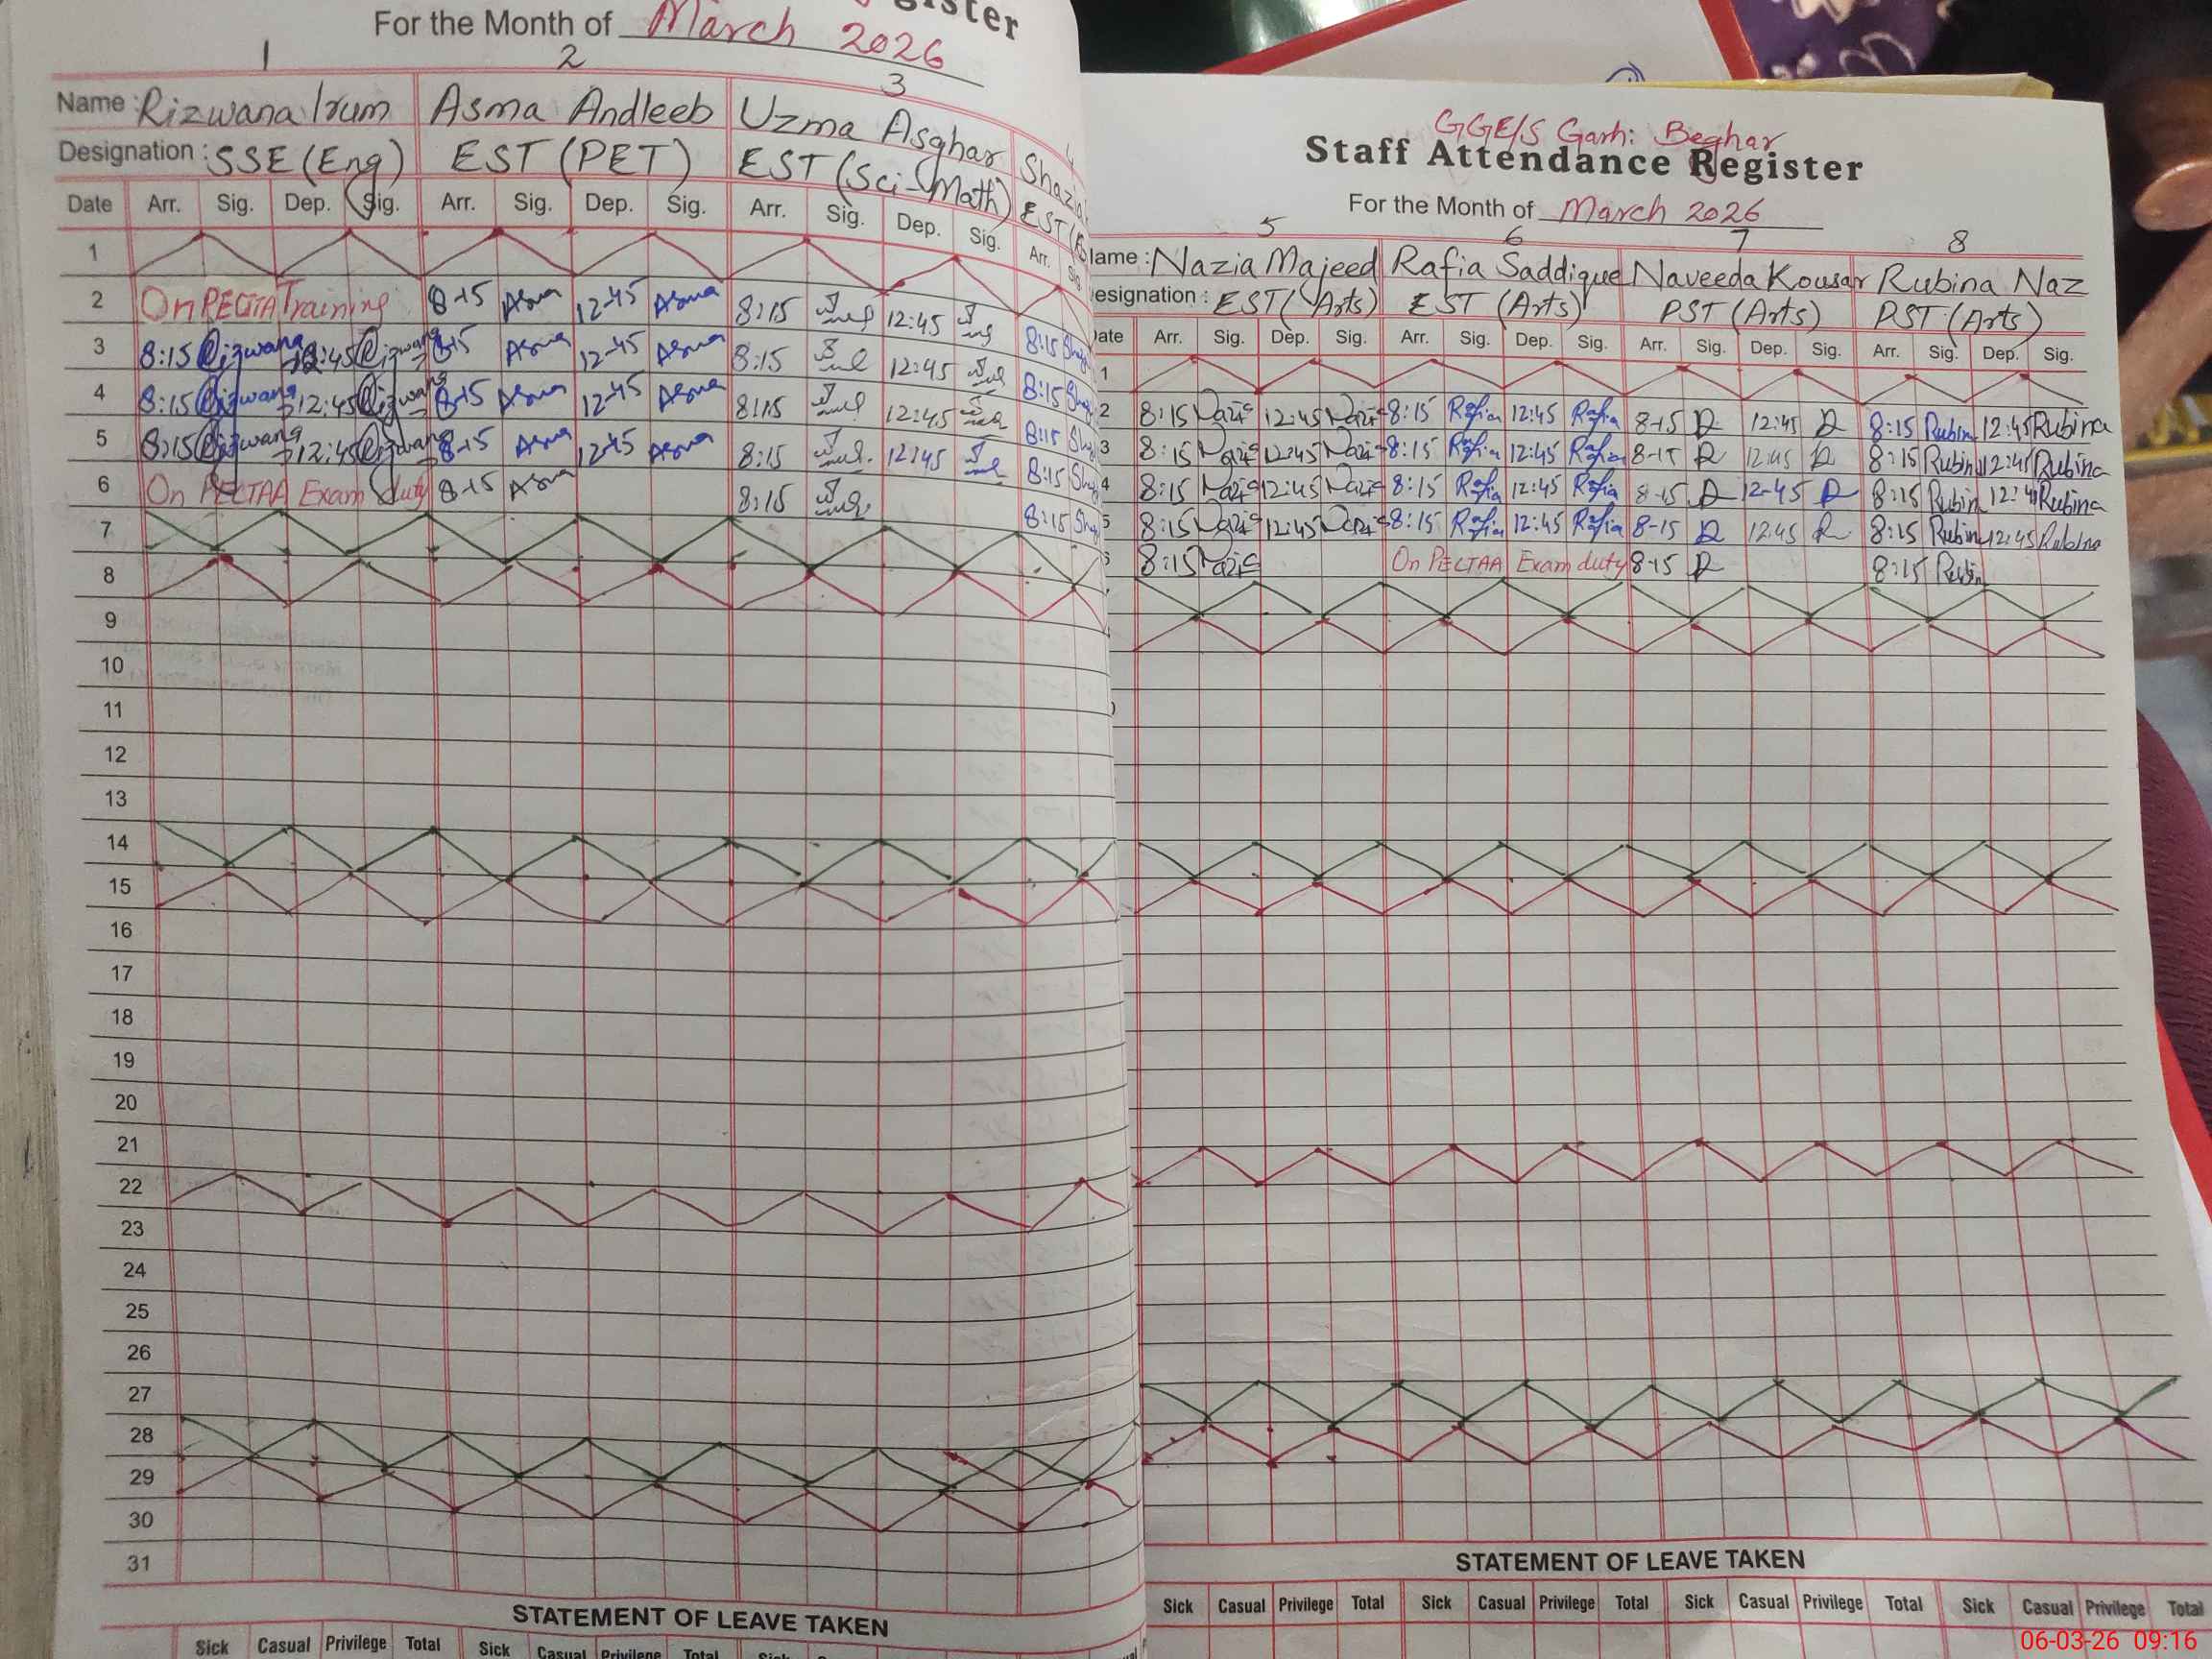 For the Month of March 2026
1 2 3
Name : Rizwana Irum Asma Andleeb Uzma Asghar
Designation : SSE (Eng) EST (PET) EST (Sci-Math)
Date Arr. Sig. Dep. Sig. Arr. Sig. Dep. Sig. Arr. Sig. Dep. Sig. Arr. Sig.
1
2 On PECTAA Training 8-15 Asma 12-45 Asma 8:15 12:45
3 8:15 Rizwana 12:45 Rizwana 8-15 Asma 12-45 Asma 8:15 12:45 8:15
4 8:15 Rizwana 12:45 Rizwana 8-15 Asma 12-45 Asma 8:15 12:45 8:15
5 8:15 Rizwana 12:45 Rizwana 8-15 Asma 12-45 Asma 8:15 12:45 8:15
6 On PECTAA Exam duty 8-15 Asma 8:15 8:15
7 8:15
8
9
10
11
12
13
14
15
16
17
18
19
20
21
22
23
24
25
26
27
28
29
30
31
STATEMENT OF LEAVE TAKEN
Sick Casual Privilege Total Sick Casual Privilege Total
GGE/S Garh: Beghar
Staff Attendance Register
For the Month of March 2026
5 6 7 8
Name : Nazia Majeed Rafia Saddique Naveeda Kousar Rubina Naz
Designation : EST (Arts) EST (Arts) PST (Arts) PST (Arts)
Date Arr. Sig. Dep. Sig. Arr. Sig. Dep. Sig. Arr. Sig. Dep. Sig. Arr. Sig. Dep. Sig.
1
2 8:15 Nazia 12:45 Nazia 8:15 Rafia 12:45 Rafia 8-15 12:45 8:15 Rubina 12:45 Rubina
3 8:15 Nazia 12:45 Nazia 8:15 Rafia 12:45 Rafia 8-15 12:45 8:15 Rubina 12:45 Rubina
4 8:15 Nazia 12:45 Nazia 8:15 Rafia 12:45 Rafia 8-15 12-45 8:15 Rubina 12:45 Rubina
5 8:15 Nazia 12:45 Nazia 8:15 Rafia 12:45 Rafia 8-15 12:45 8:15 Rubina 12:45 Rubina
8:15 Nazia On PECTAA Exam duty 8-15 8:15 Rubina
STATEMENT OF LEAVE TAKEN
Sick Casual Privilege Total Sick Casual Privilege Total Sick Casual Privilege Total Sick Casual Privilege Total
06-03-26 09:16